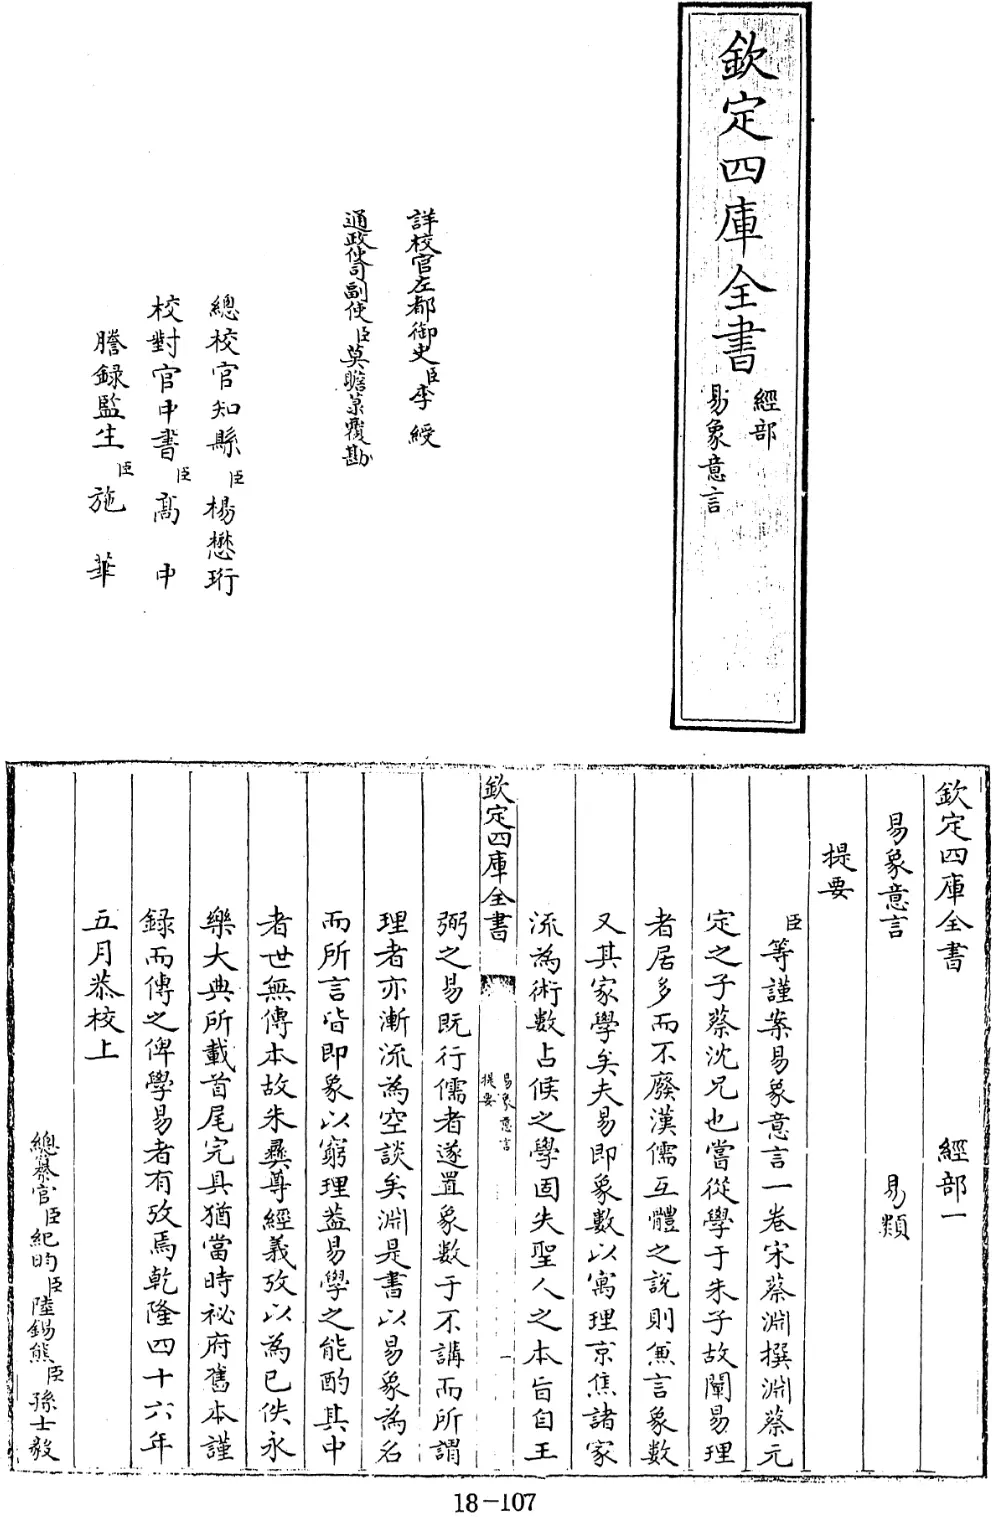 欽定四庫全書
經部
易象意言
詳校官左都御史臣李綬
通政使司副使臣莫瞻菉覆勘
總校官知縣臣楊懋珩
校對官中書臣高中
謄錄監生臣施華
欽定四庫全書 經部一
易象意言 易類
提要
臣等謹案易象意言一卷宋蔡淵撰淵蔡元
定之子蔡沈兄也嘗從學于朱子故闡易理
者居多而不廢漢儒互體之說則兼言象數
又其家學矣夫易即象數以寓理京焦諸家
流為術數占候之學固失聖人之本旨自王
欽定四庫全書
易象意言
提要
一
弼之易既行儒者遂置象數于不講而所謂
理者亦漸流為空談矣淵是書以易象為名
而所言皆即象以窮理葢易學之能酌其中
者世無傳本故朱彝尊經義攷以為已佚永
樂大典所載首尾完具猶當時祕府舊本謹
錄而傳之俾學易者有攷焉乾隆四十六年
五月恭校上
總纂官臣紀昀臣陸錫熊臣孫士毅
18-107